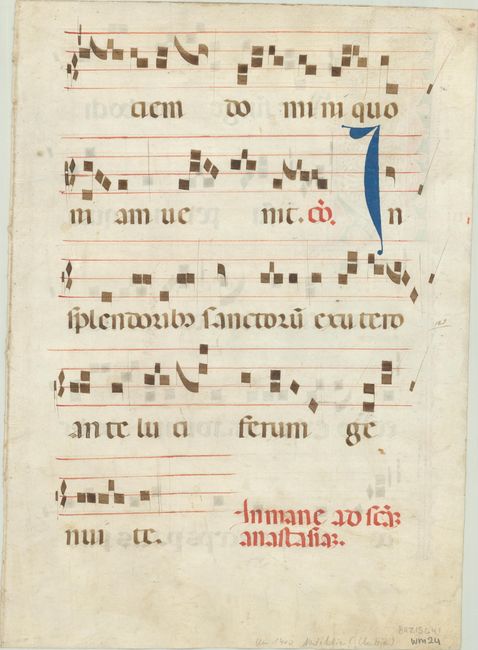 ciem do mini quo
ni am ve nit. cō. In
splendoribꝫ sanctorū ex utero
an te lu ci ferum ge
nui te.
In mane ad scā̄ꝫ
anastasiaꝫ.
WM24